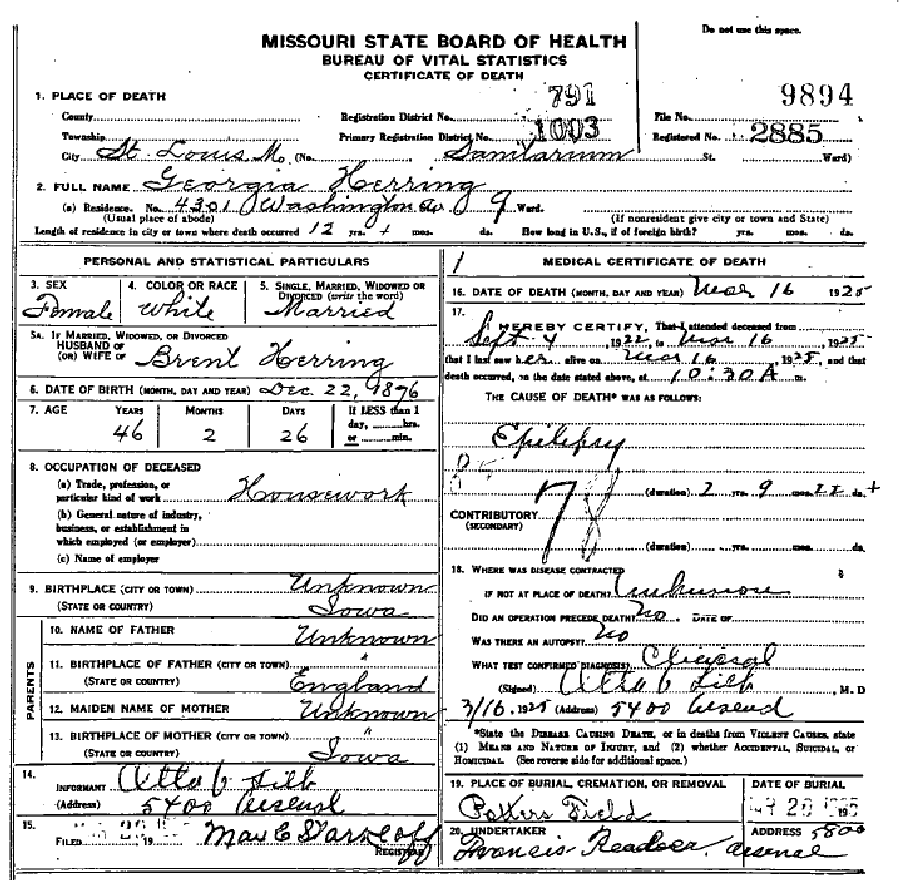 Do not use this space.
MISSOURI STATE BOARD OF HEALTH
BUREAU OF VITAL STATISTICS
CERTIFICATE OF DEATH
1. PLACE OF DEATH
County
Registration District No. 791
File No. 9894
Township
Primary Registration District No. 1003
Registered No. 2885
City St. Louis Mo. (No. Sanitarium St. Ward)
2. FULL NAME Georgia Herring
(a) Residence. No. 4301 Washington Av 9 Ward.
(Usual place of abode) (If nonresident give city or town and State)
Length of residence in city or town where death occurred 12 yrs. + mos. ds. How long in U.S., if of foreign birth? yrs. mos. ds.
PERSONAL AND STATISTICAL PARTICULARS
3. SEX
Female
4. COLOR OR RACE
White
5. SINGLE, MARRIED, WIDOWED OR
DIVORCED (write the word)
Married
5A. IF MARRIED, WIDOWED, OR DIVORCED
HUSBAND OF
(OR) WIFE OF Brent Herring
6. DATE OF BIRTH (MONTH, DAY AND YEAR) Dec 22, 1876
7. AGE YEARS MONTHS DAYS If LESS than 1
day, hrs.
or min.
46 2 26
8. OCCUPATION OF DECEASED
(a) Trade, profession, or
particular kind of work Housework
(b) General nature of industry,
business, or establishment in
which employed (or employer)
(c) Name of employer
9. BIRTHPLACE (CITY OR TOWN) Unknown
(STATE OR COUNTRY) Iowa
PARENTS
10. NAME OF FATHER Unknown
11. BIRTHPLACE OF FATHER (CITY OR TOWN) "
(STATE OR COUNTRY) England
12. MAIDEN NAME OF MOTHER Unknown
13. BIRTHPLACE OF MOTHER (CITY OR TOWN) "
(STATE OR COUNTRY) Iowa
14.
INFORMANT
(Address) 5400 Arsenal
15.
FILED 19 Max C Starkloff
REGISTRAR
1 MEDICAL CERTIFICATE OF DEATH
16. DATE OF DEATH (MONTH, DAY AND YEAR) Mar 16 1925
17.
I HEREBY CERTIFY, That I attended deceased from
Sept 4, 1922, to Mar 16, 1925
that I last saw her alive on Mar 16, 1925, and that
death occurred, on the date stated above, at 10:30 A m.
THE CAUSE OF DEATH* WAS AS FOLLOWS:
Epilepsy
78 (duration) 2 yrs. 9 mos. 22 ds. +
CONTRIBUTORY
(SECONDARY)
(duration) yrs. mos. ds.
18. WHERE WAS DISEASE CONTRACTED
IF NOT AT PLACE OF DEATH? Unknown
DID AN OPERATION PRECEDE DEATH? No. DATE OF
WAS THERE AN AUTOPSY? No
WHAT TEST CONFIRMED DIAGNOSIS? Clinical
(Signed) , M. D
3/16, 1925 (Address) 5400 Arsenal
*State the DISEASE CAUSING DEATH, or in deaths from VIOLENT CAUSES, state
(1) MEANS AND NATURE OF INJURY, and (2) whether ACCIDENTAL, SUICIDAL, or
HOMICIDAL. (See reverse side for additional space.)
19. PLACE OF BURIAL, CREMATION, OR REMOVAL
Potters Field
DATE OF BURIAL
20. UNDERTAKER
Francis
ADDRESS 5800
Arsenal